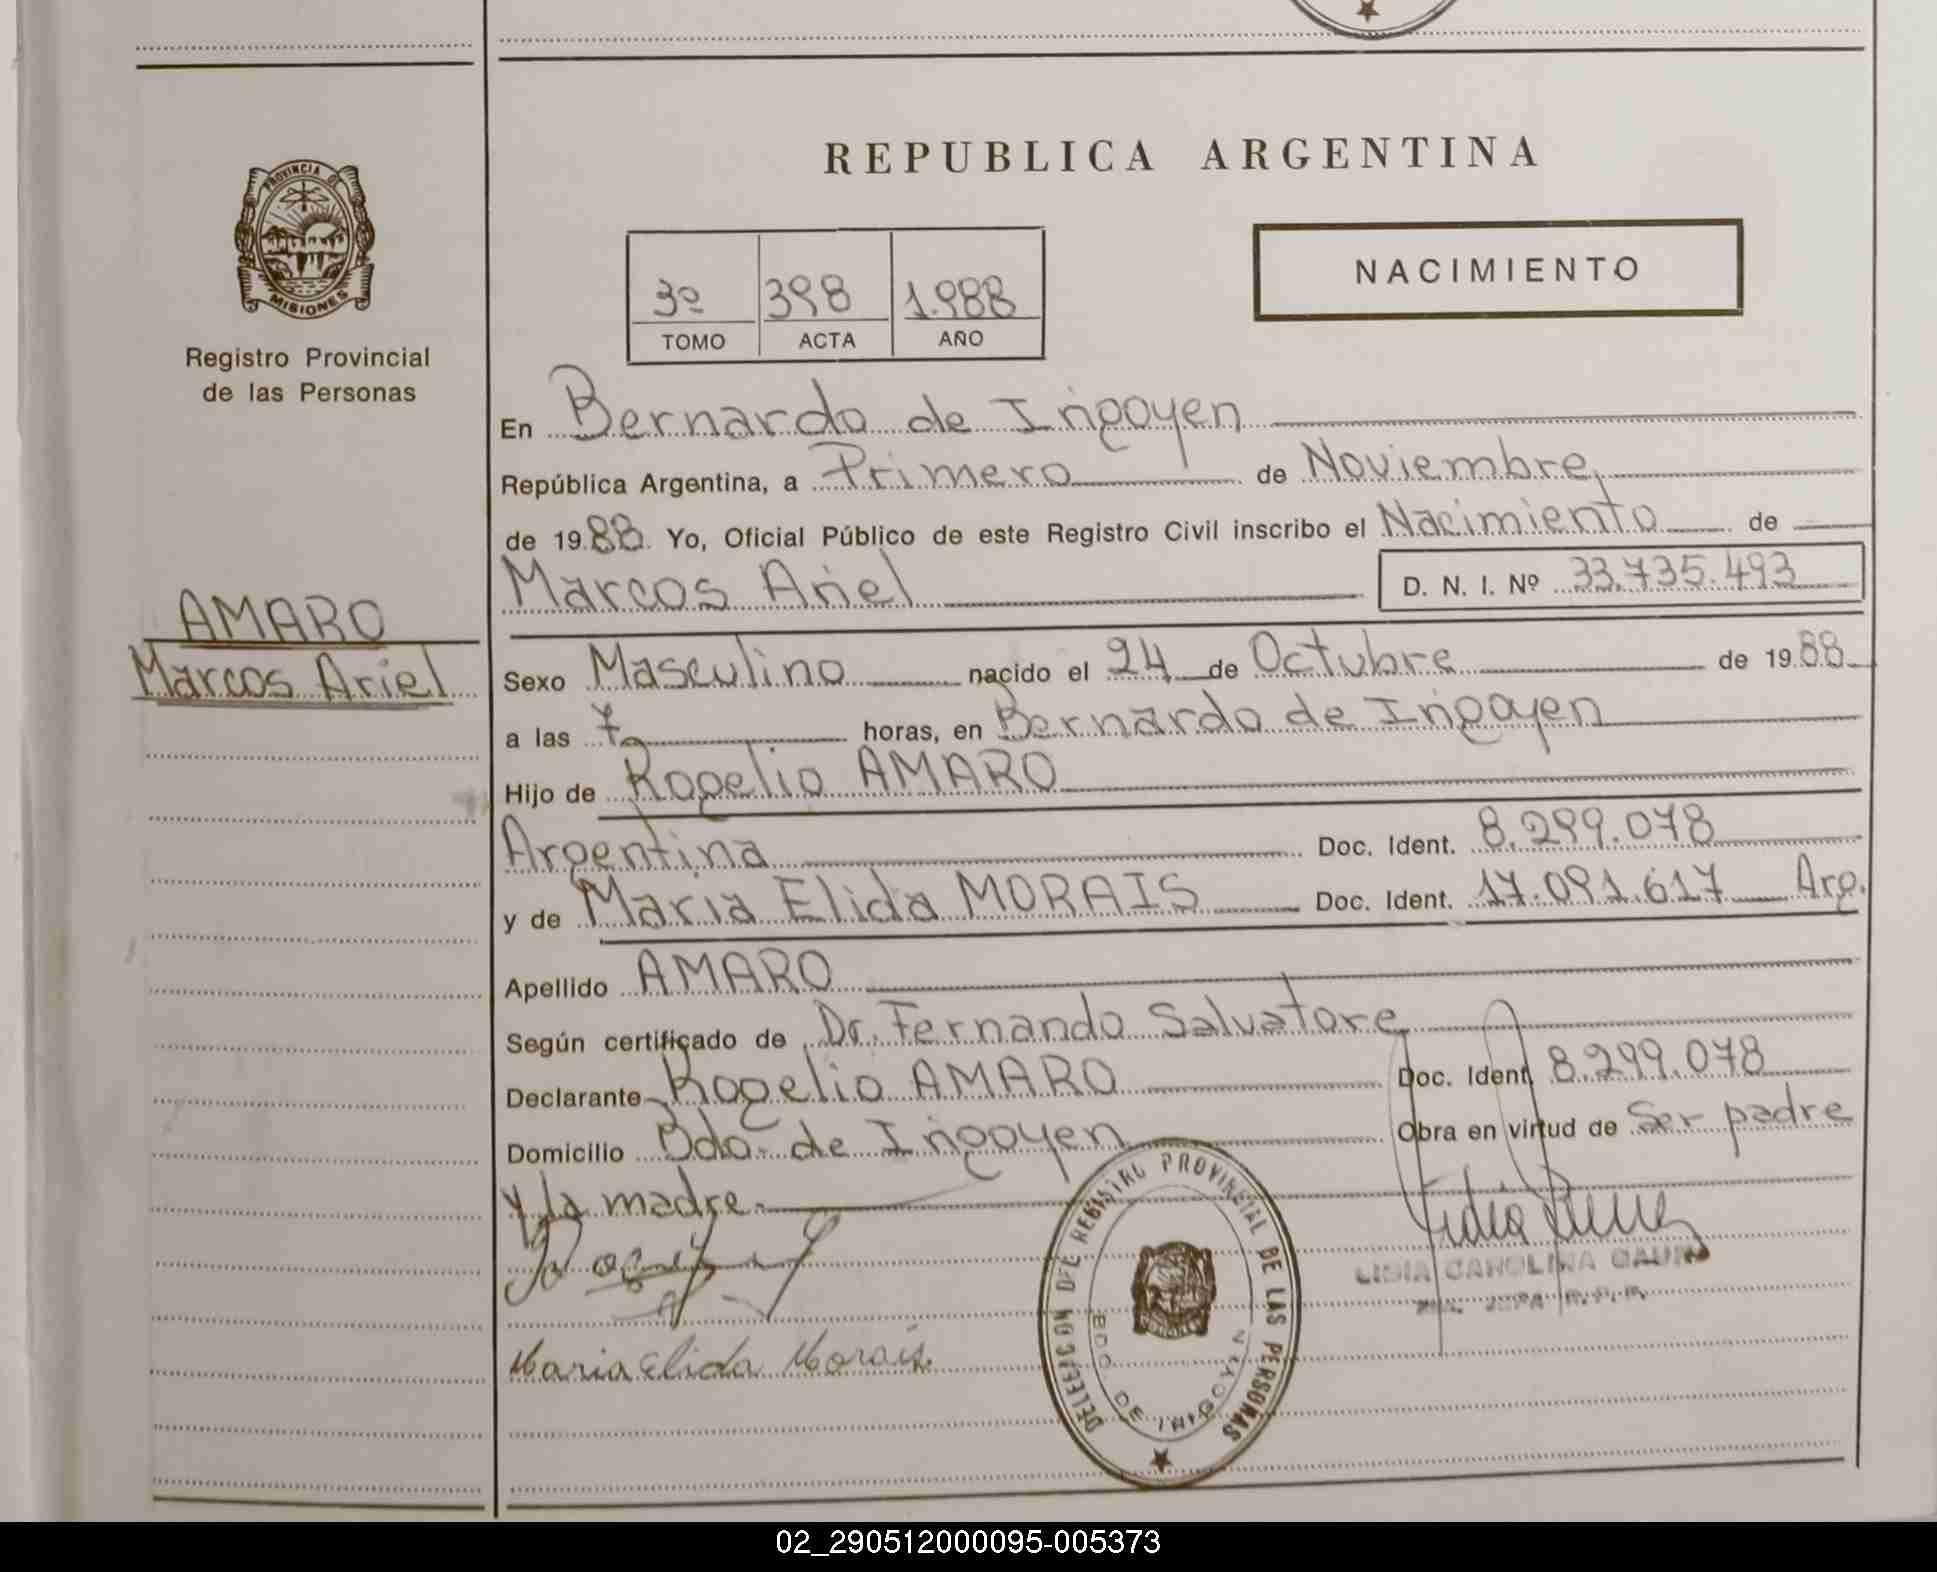 REPUBLICA ARGENTINA
PROVINCIA DE
MISIONES
Registro Provincial
de las Personas
3º 398 1.988
TOMO ACTA AÑO
NACIMIENTO
En Bernardo de Irigoyen
República Argentina, a Primero de Noviembre,
de 1988 Yo, Oficial Público de este Registro Civil inscribo el Nacimiento de
Marcos Ariel D. N. I. Nº 33.735.493
AMARO
Marcos Ariel
Sexo Masculino nacido el 24 de Octubre de 1988
a las 7 horas, en Bernardo de Irigoyen
Hijo de Rogelio AMARO
Argentina Doc. Ident. 8.299.078
y de Maria Elida MORAIS Doc. Ident. 17.091.617 Arg.
Apellido AMARO
Según certificado de Dr. Fernando Salvatore
Declarante Rogelio AMARO Doc. Ident. 8.299.078
Domicilio Bdo. de Irigoyen Obra en virtud de Ser padre
y la madre
Maria Elida Morais
DELEGACION DEL REGISTRO PROVINCIAL DE LAS PERSONAS
BDO. DE IRIGOYEN
LIDIA CAROLINA
02_290512000095-005373